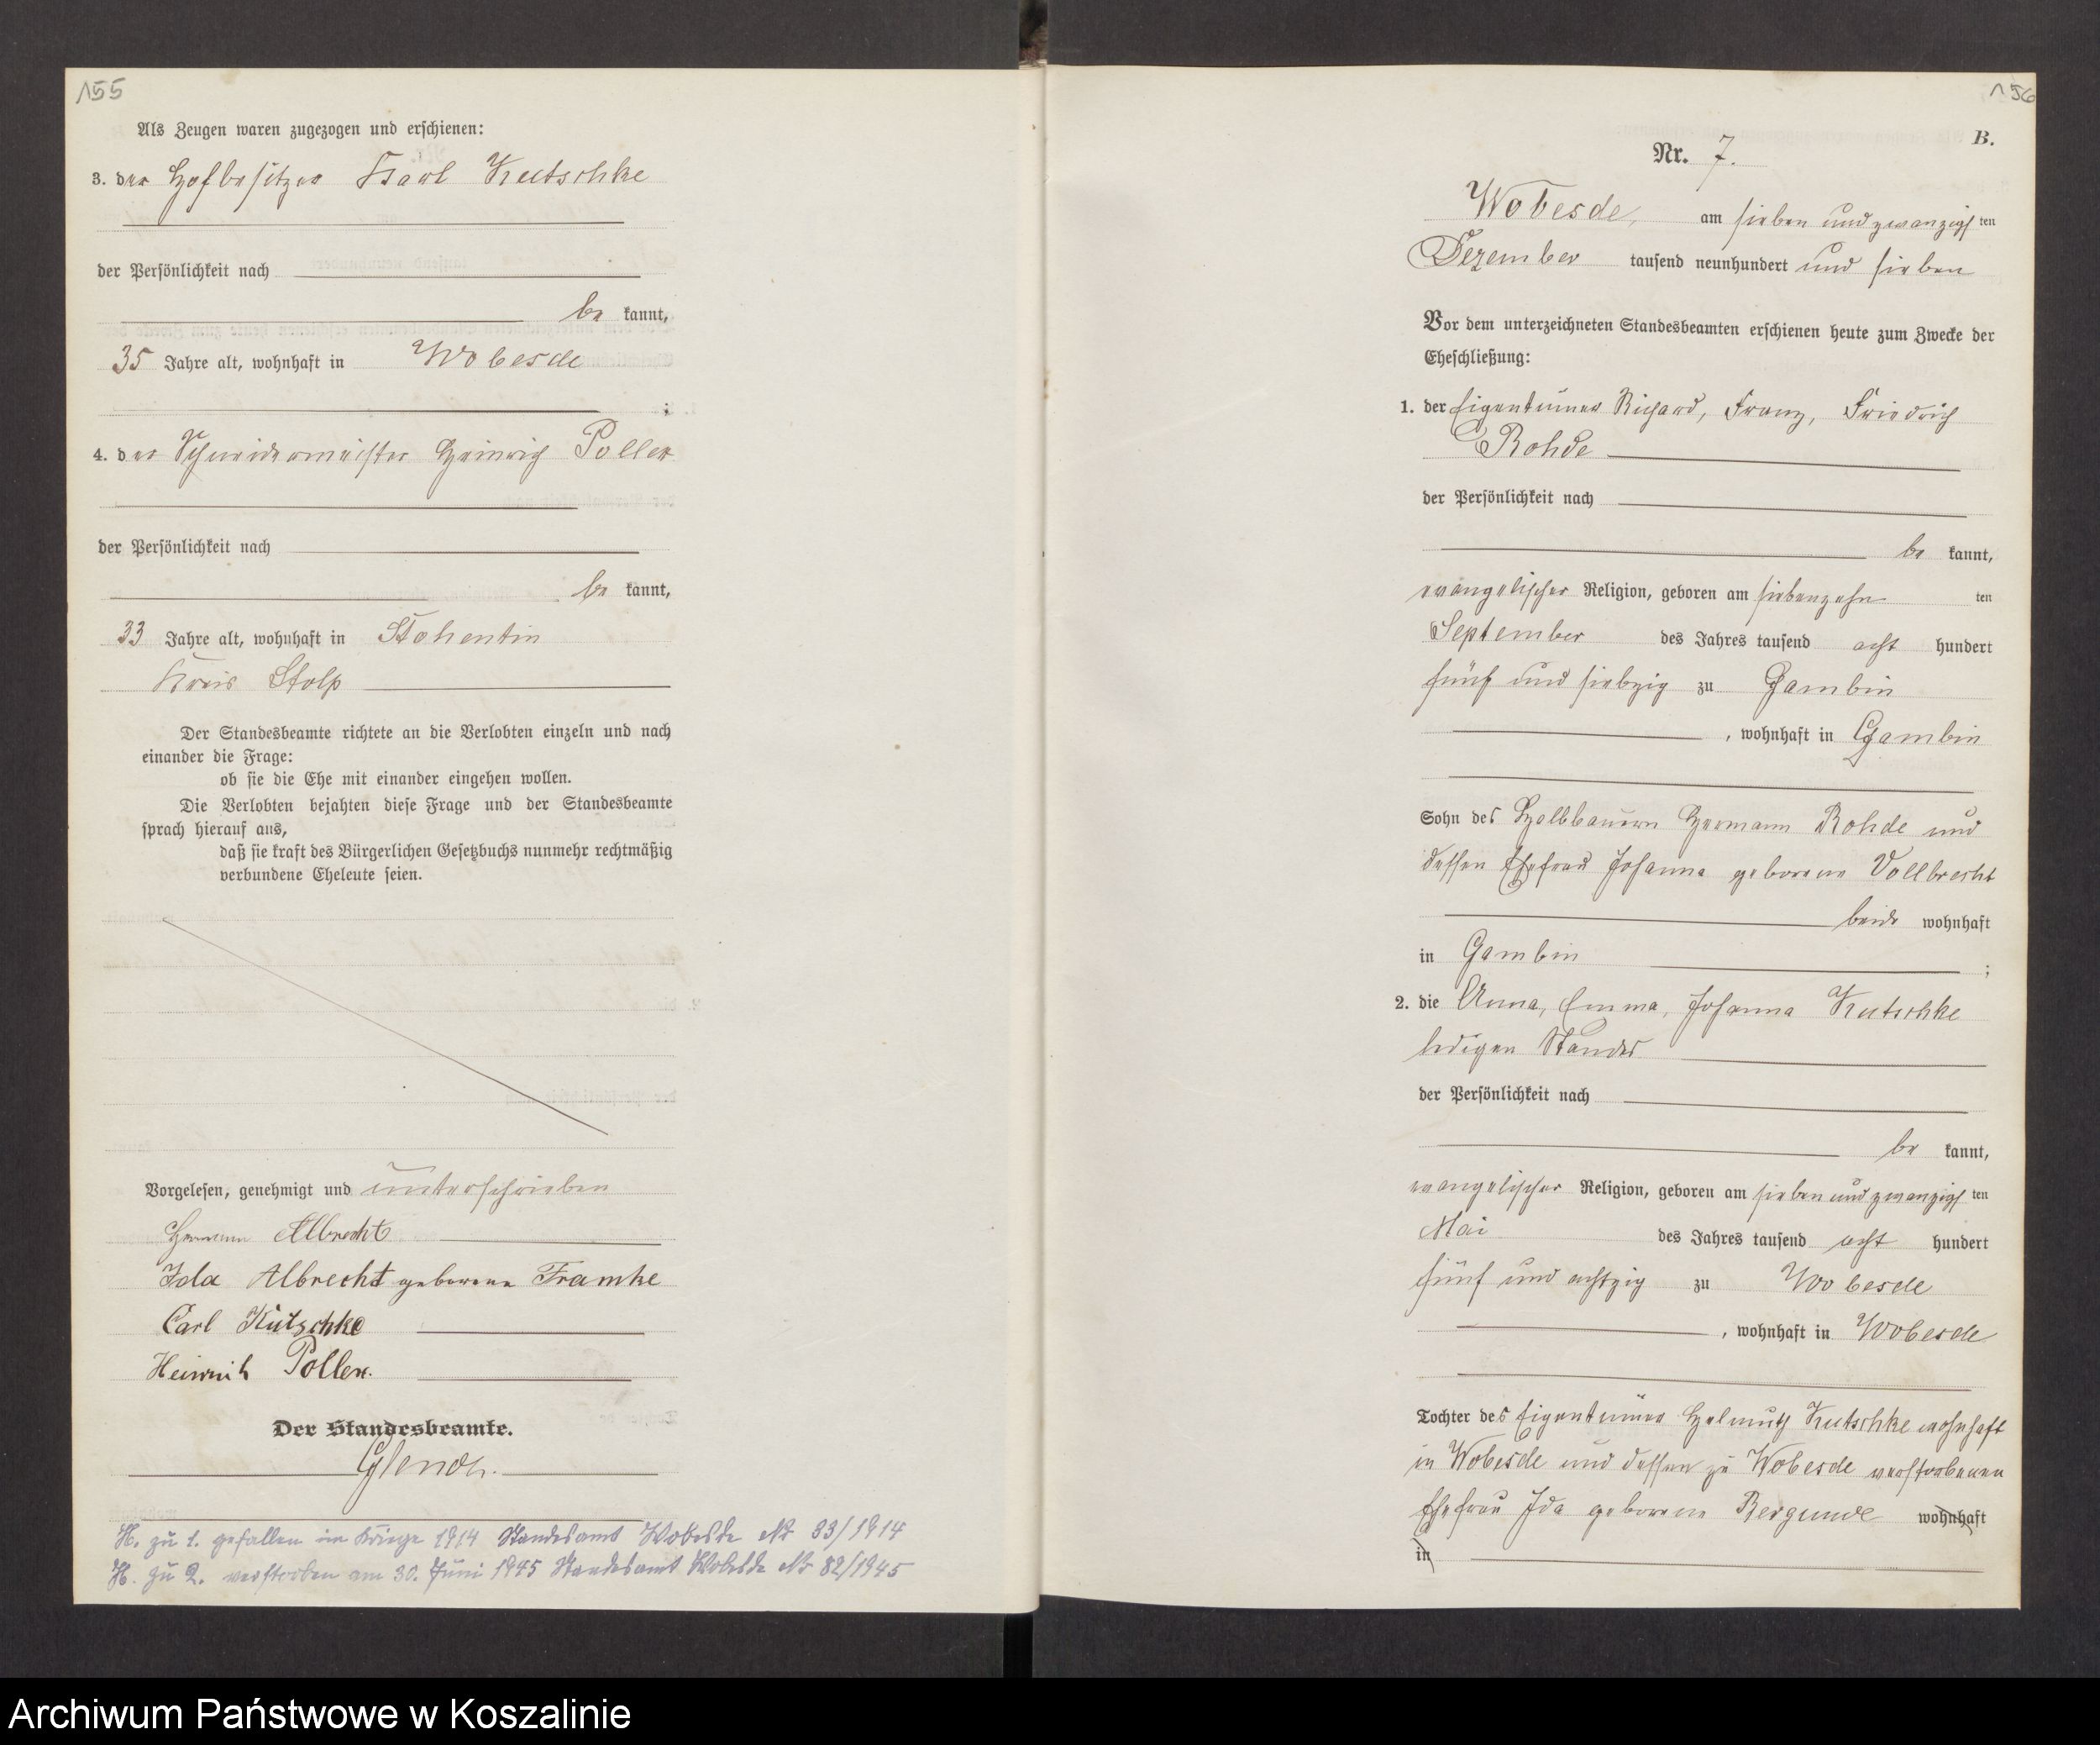 155
Als Zeugen waren zugezogen und erschienen:
3. der Hofbesitzer Karl Kutschke
der Persönlichkeit nach
be kannt,
35 Jahre alt, wohnhaft in Wobesde
;
4. der Schneidermeister Heinrich Poller
der Persönlichkeit nach
be kannt,
33 Jahre alt, wohnhaft in Stohentin
Kreis Stolp
Der Standesbeamte richtete an die Verlobten einzeln und nach
einander die Frage:
ob sie die Ehe mit einander eingehen wollen.
Die Verlobten bejahten diese Frage und der Standesbeamte
sprach hierauf aus,
daß sie kraft des Bürgerlichen Gesetzbuchs nunmehr rechtmäßig
verbundene Eheleute seien.
Vorgelesen, genehmigt und unterschrieben
Hermann Albrecht
Ida Albrecht geborene Framke
Carl Kutschke
Heinrich Poller.
Der Standesbeamte.
H. zu 1. gefallen im Kriege 1914 Standesamt Wobesde Nr 83/1914
H. zu 2. verstorben am 30. Juni 1945 Standesamt Wobesde Nr 82/1945
156
B.
Nr. 7.
Wobesde, am sieben und zwanzigsten
Dezember tausend neunhundert und sieben
Vor dem unterzeichneten Standesbeamten erschienen heute zum Zwecke der
Eheschließung:
1. der Eigentümer Richard, Franz, Friedrich
Rohde
der Persönlichkeit nach
be kannt,
evangelischer Religion, geboren am siebenzehn ten
September des Jahres tausend acht hundert
fünf und siebzig zu Gambin
, wohnhaft in Gambin
Sohn des Halbbauern Hermann Rohde und
dessen Ehefrau Johanna geborene Vollbrecht
beide wohnhaft
in Gambin ;
2. die Anna, Emma, Johanna Kutschke
ledigen Standes
der Persönlichkeit nach
be kannt,
evangelischer Religion, geboren am sieben und zwanzigsten
Mai des Jahres tausend acht hundert
fünf und achtzig zu Wobesde
, wohnhaft in Wobesde
Tochter des Eigentümer Helmuth Kutschke wohnhaft
in Wobesde und dessen zu Wobesde verstorbenen
Ehefrau Ida geborene Bergunde wohnhaft
in
Archiwum Państwowe w Koszalinie